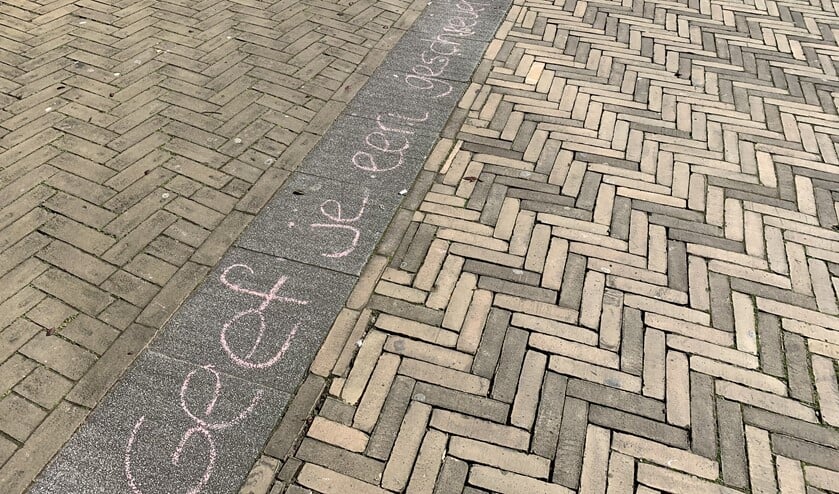 Geef je een geschenk